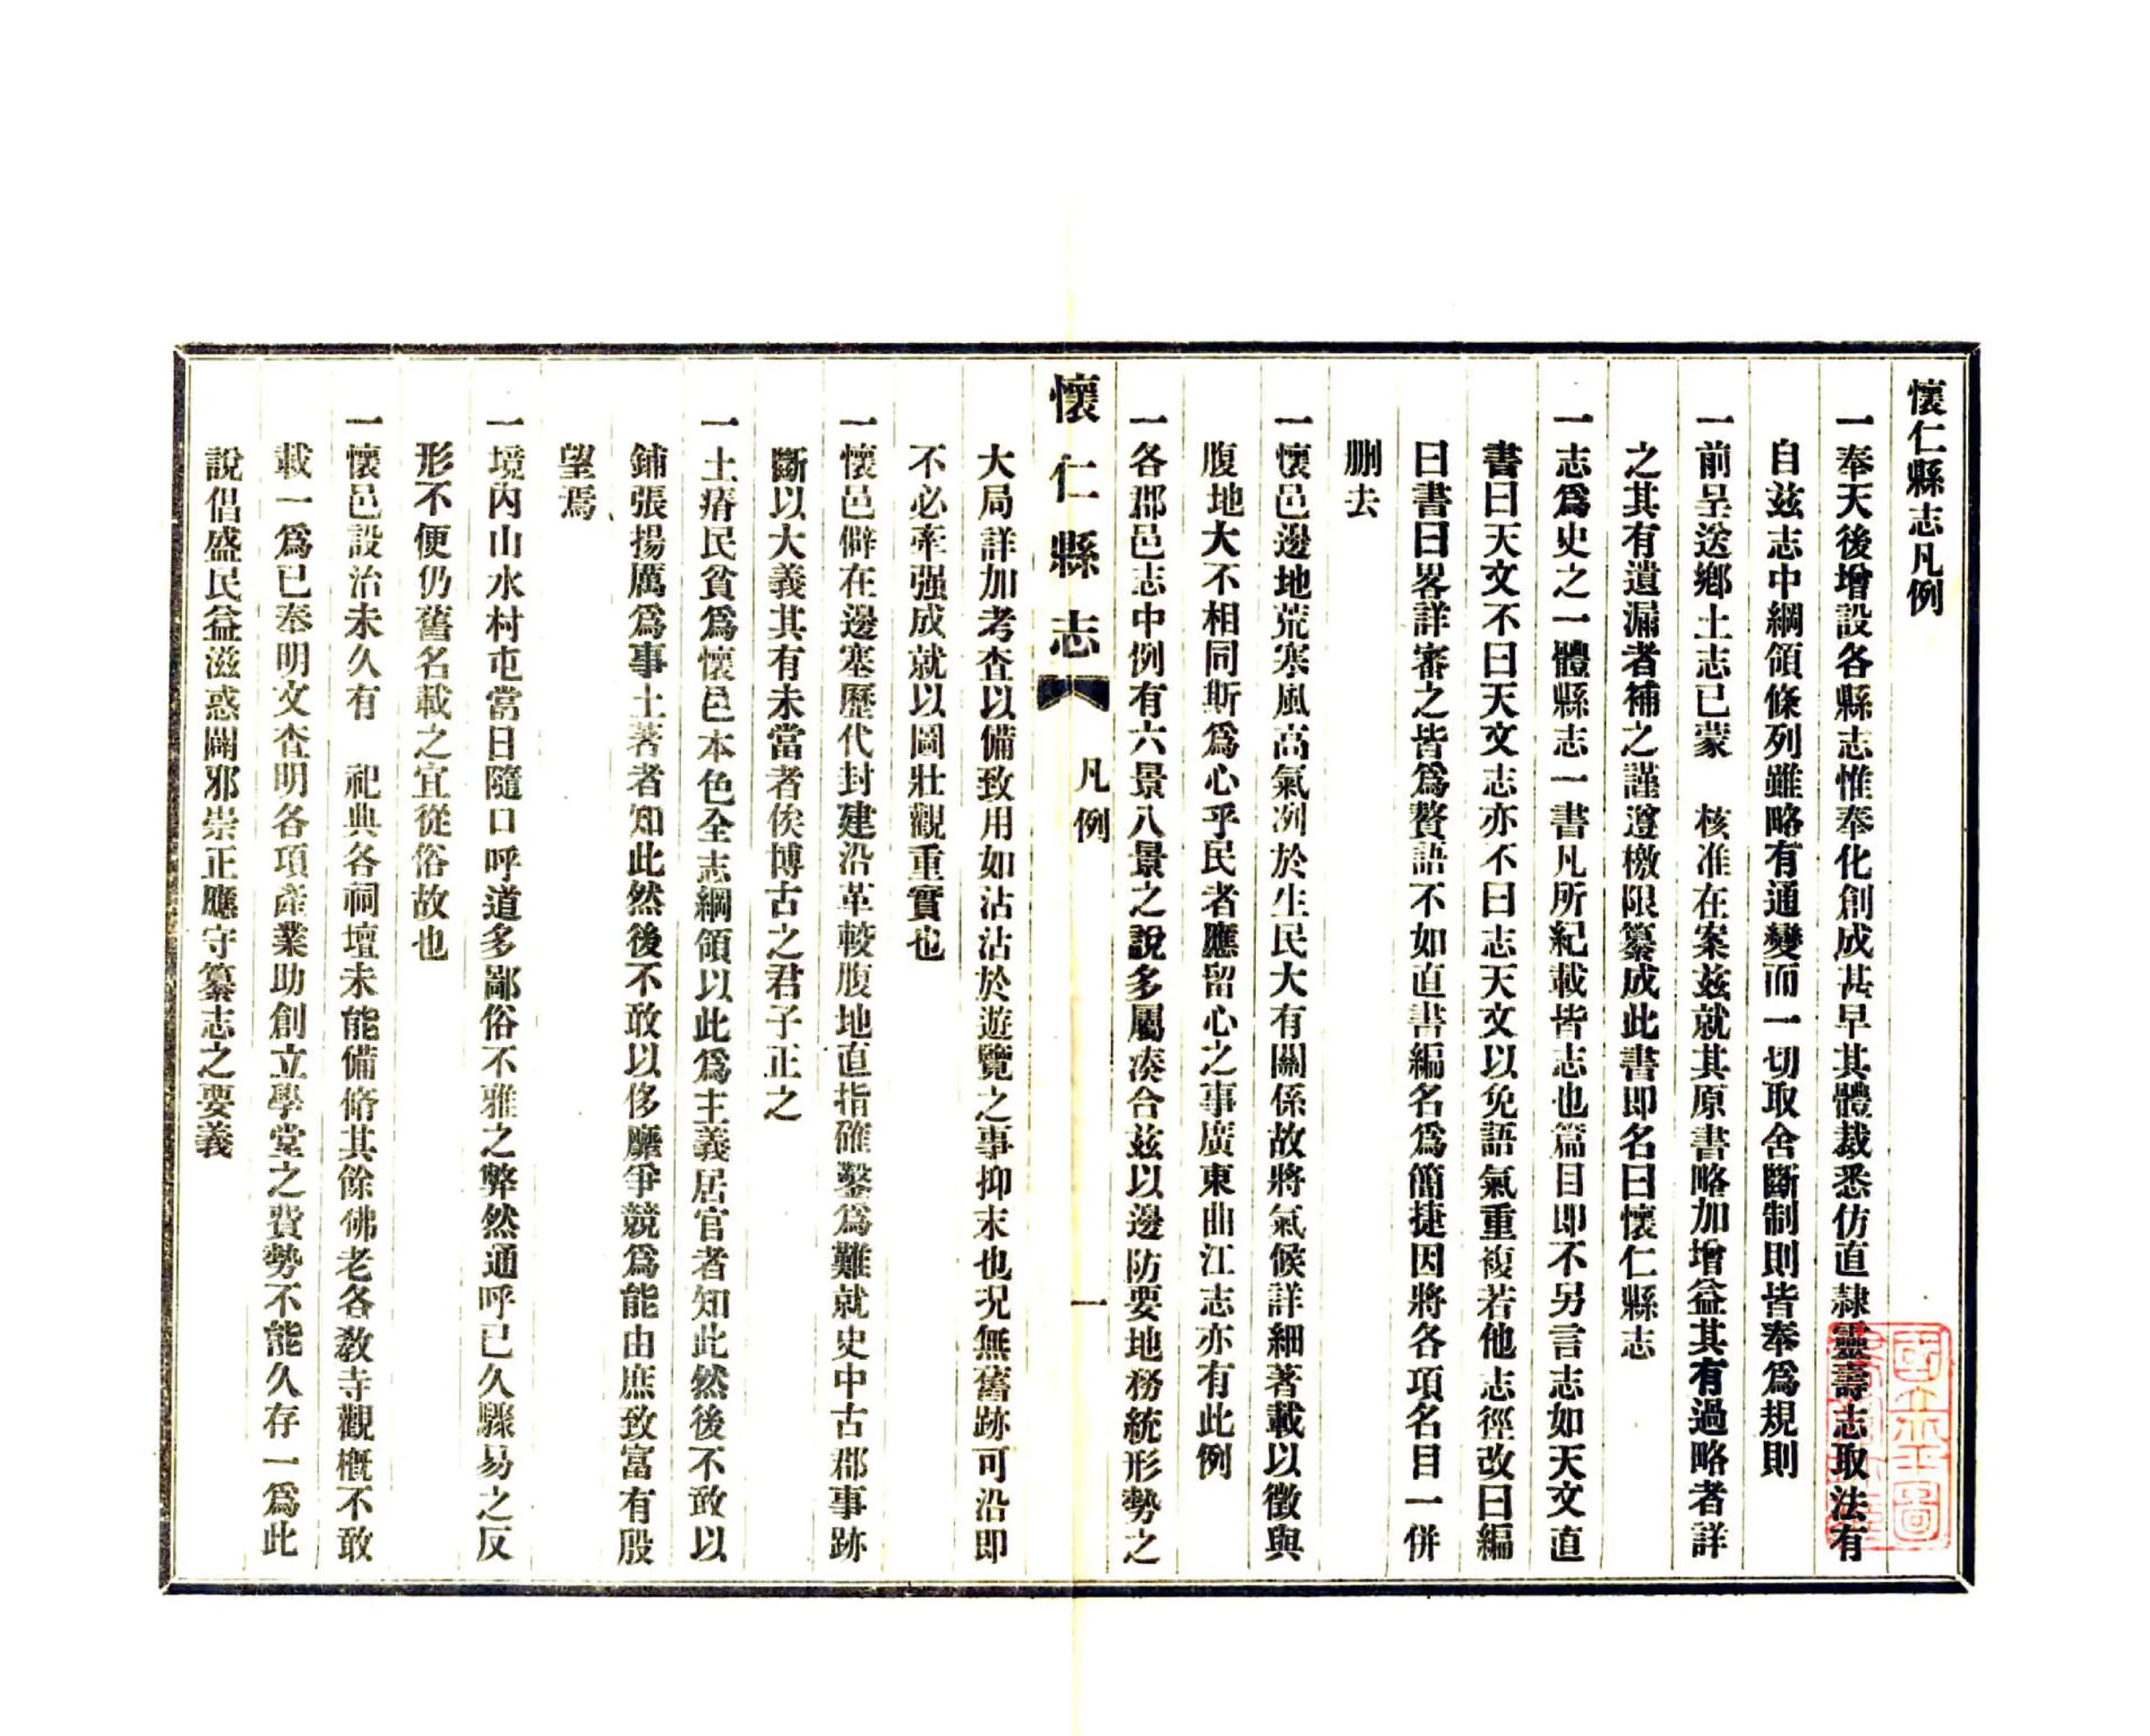 懷仁縣志凡例
一奉天後增設各縣志惟奉化創成甚早其體裁悉仿直隸靈壽志取法有
自兹志中綱領條列雖略有通變而一切取舍斷制則皆奉爲規則
一前呈送鄉土志已蒙　核准在案兹就其原書略加增益其有過略者詳
之其有遺漏者補之謹遵檄限纂成此書即名曰懷仁縣志
一志爲史之一體縣志一書凡所紀載皆志也篇目即不另言志如天文直
書曰天文不曰天文志亦不曰志天文以免語氣重複若他志徑改曰編
曰書曰畧詳審之皆爲贅語不如直書編名爲簡捷因將各項名目一併
删去
一懷邑邊地荒寒風高氣冽於生民大有關係故將氣候詳細著載以徵與
腹地大不相同斯爲心乎民者應留心之事廣東曲江志亦有此例
一各郡邑志中例有六景八景之說多屬湊合兹以邊防要地務統形勢之
懷仁縣志　凡例　一
大局詳加考查以備致用如沾沾於遊覽之事抑末也況無舊跡可沿即
不必牽强成就以圖壯觀重實也
一懷邑僻在邊塞歷代封建沿革較腹地直指確鑿爲難就史中古郡事跡
斷以大義其有未當者俟博古之君子正之
一土瘠民貧爲懷邑本色全志綱領以此爲主義居官者知此然後不敢以
鋪張揚厲爲事土著者知此然後不敢以侈靡爭競爲能由庶致富有殷
望焉
一境內山水村屯當日隨口呼道多鄙俗不雅之弊然通呼已久驟易之反
形不便仍舊名載之宜從俗故也
一懷邑設治未久有　祀典各祠壇未能備脩其餘佛老各教寺觀概不敢
載一爲已奉明文查明各項產業助創立學堂之費勢不能久存一爲此
說倡盛民益滋惑闢邪崇正應守纂志之要義